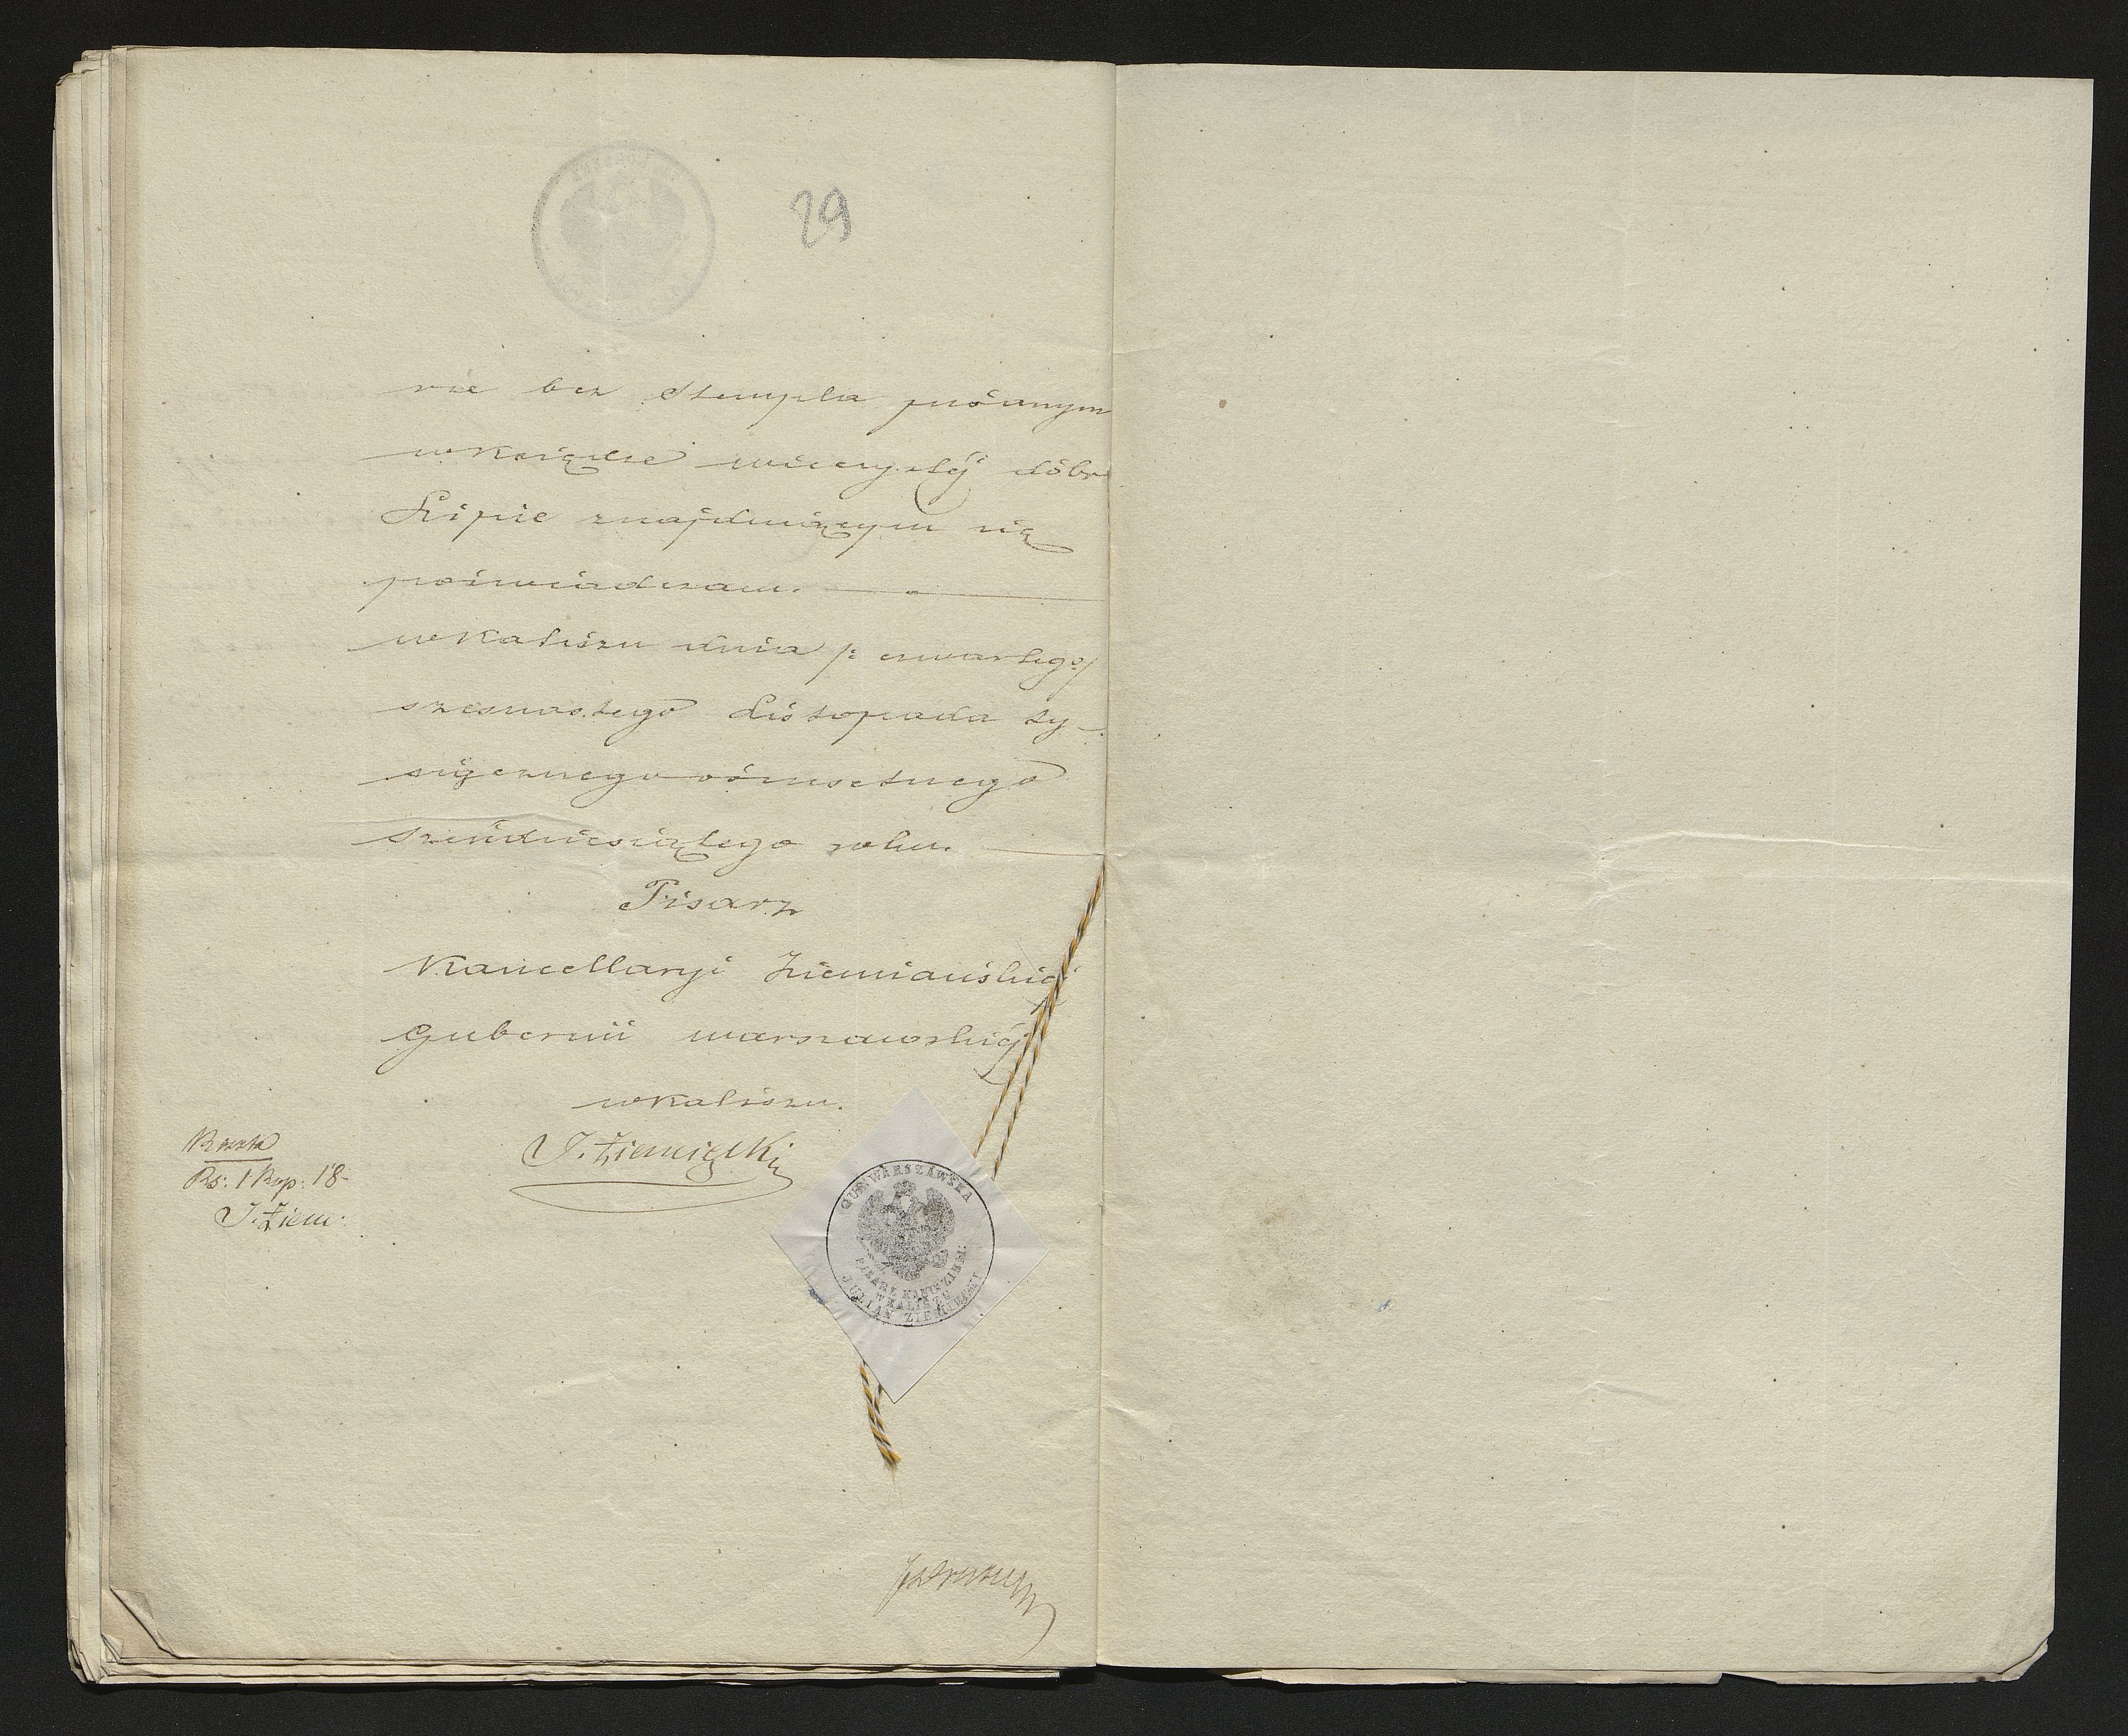 29
rze bez stempla pisanym
w Księdze wieczystéj dóbr
Lipie znajdującym się
poświadczam.
w Kaliszu dnia /: czwartego /
szesnastego Listopada ty-
siącznego ośmsetnego
sześćdziesiątego roku.
Pisarz
Kancellaryi Ziemiańskiéj
Gubernii warszawskiéj
w Kaliszu.
J. Ziemięcki
Koszta
Rs: 1 Kop: 18-
J. Ziem:
GUB: WARSZAWSKA
PISARZ KANC: ZIEM:
W KALISZU
JULIAN ZIEMIĘCKI